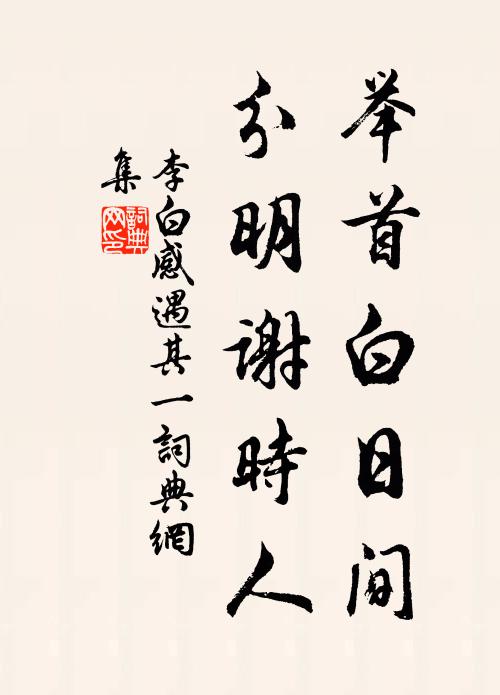 举首白日间
分明謝時人
李白感遇其一詞典網
集
詞典网印